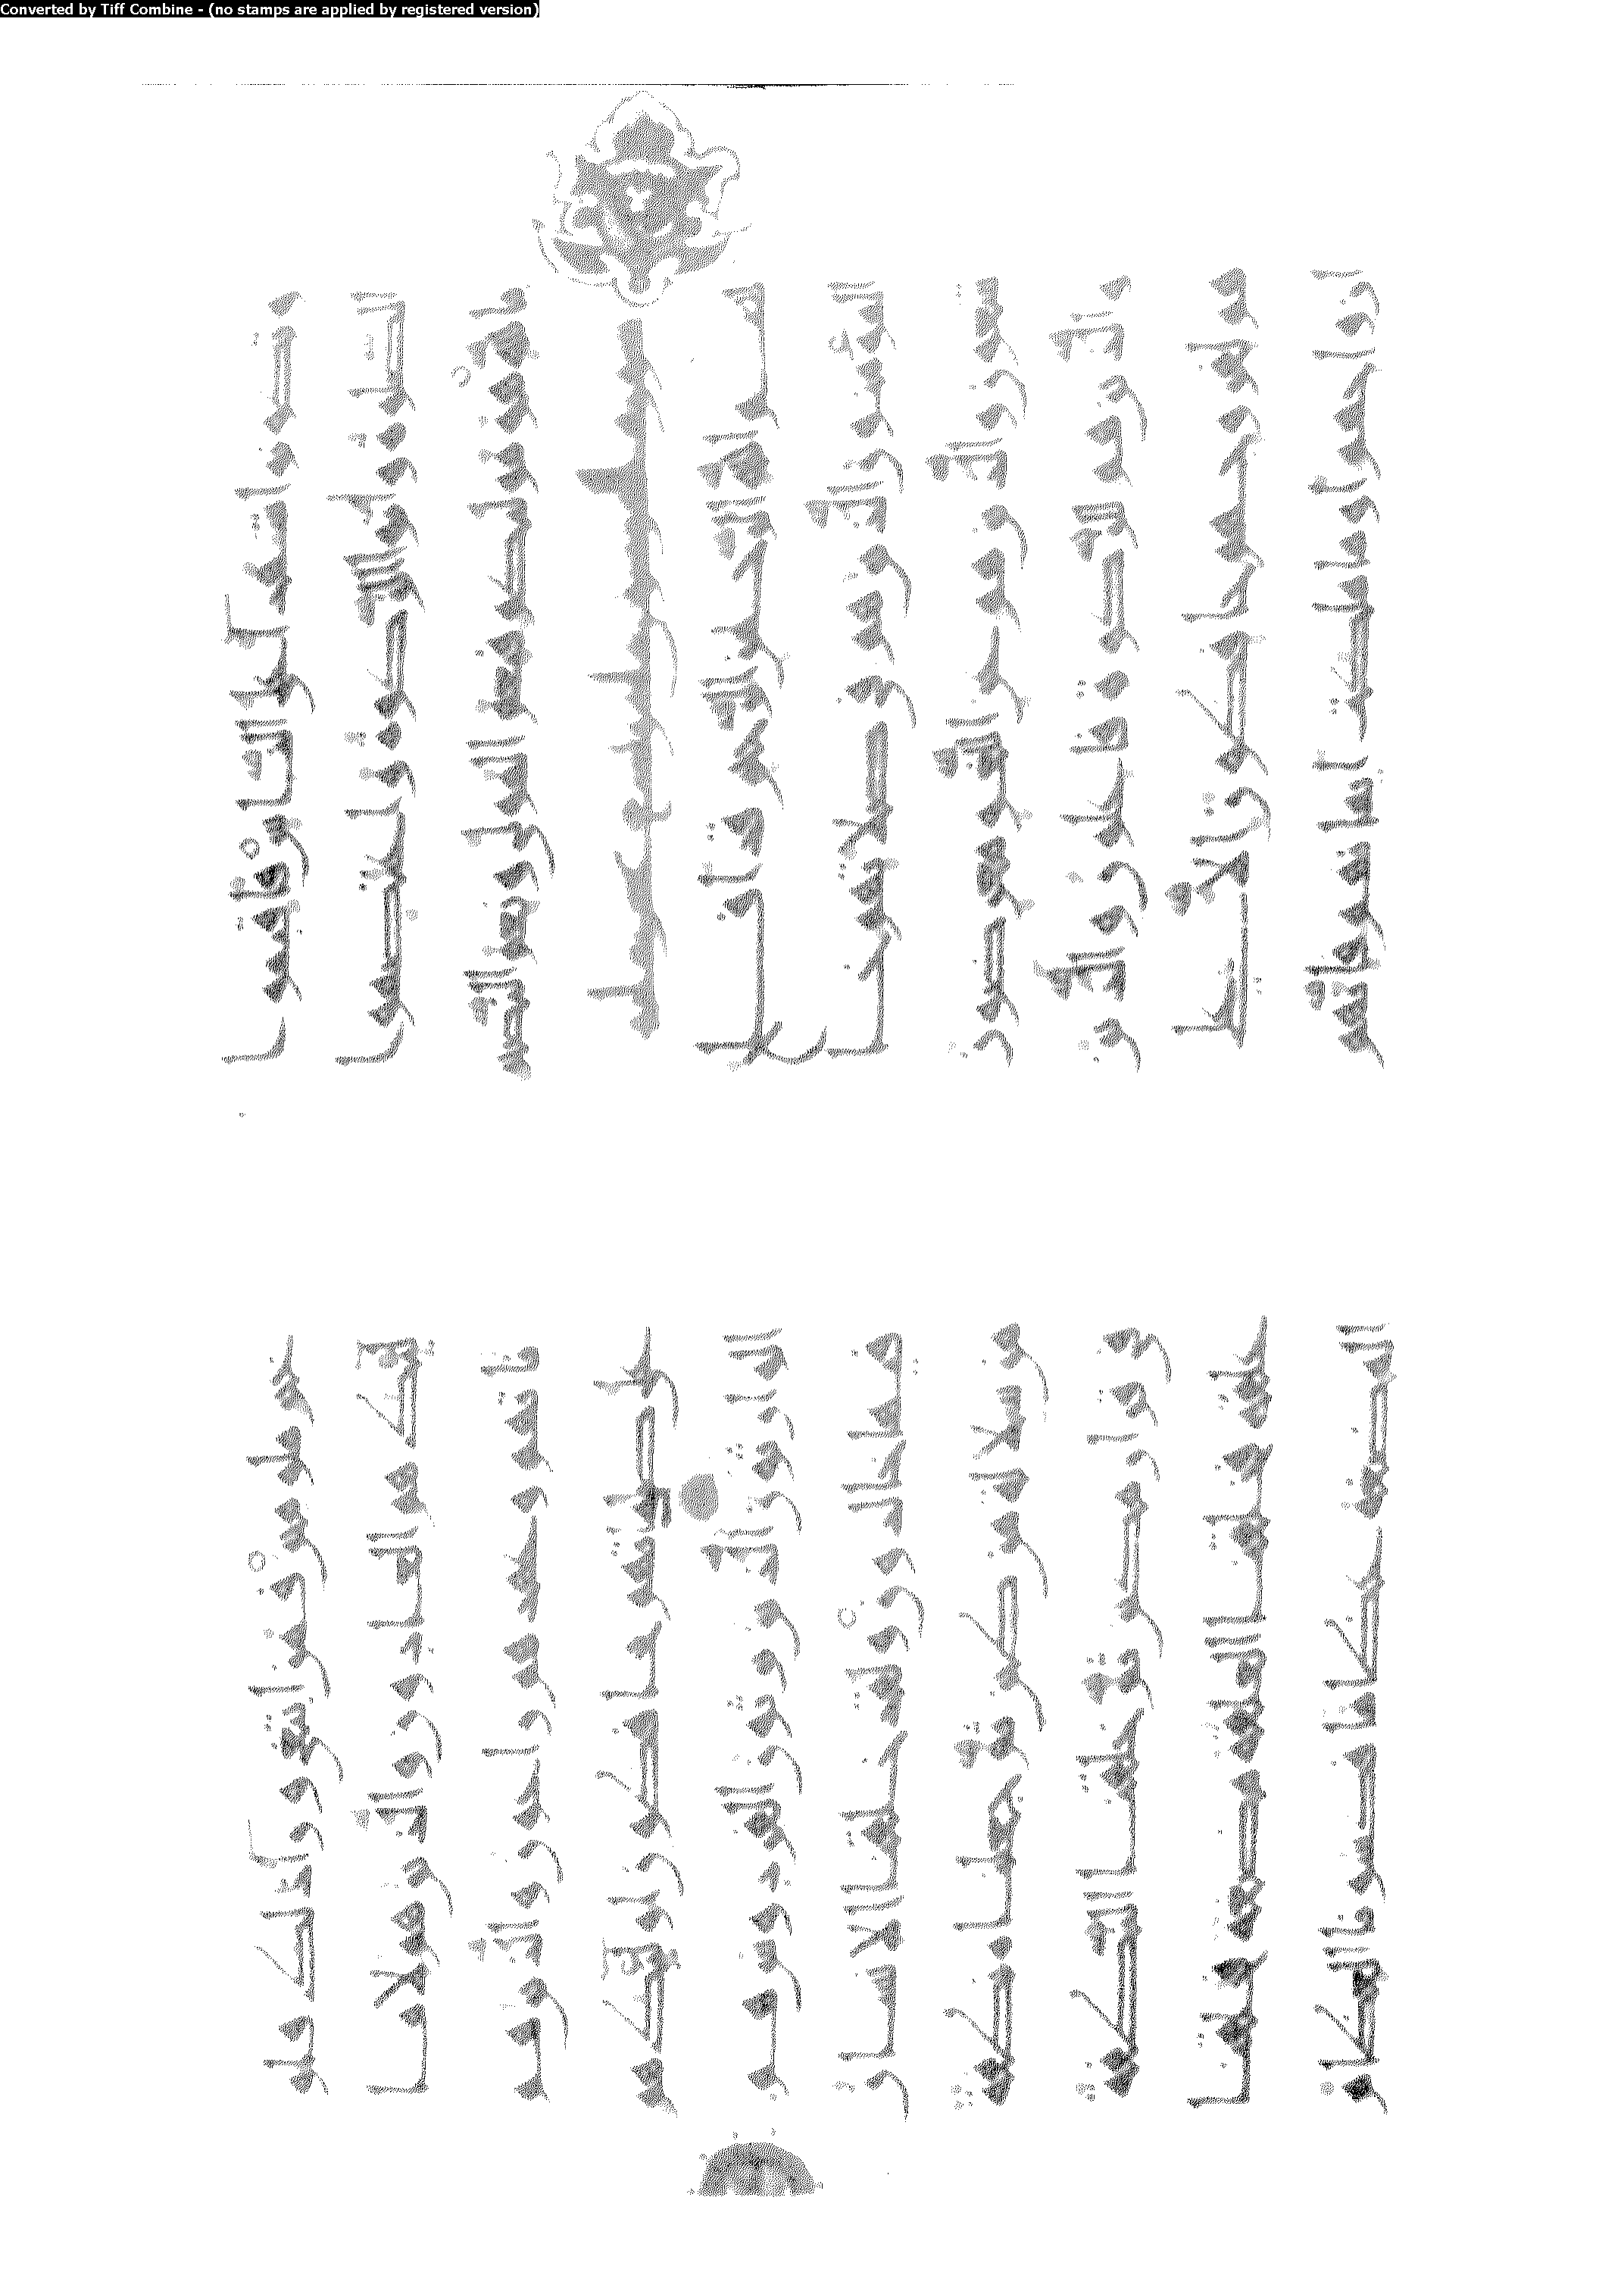 وتكونوا شهدآ على الناس فاقيموا
الصلوة واتوا الزكوة واعتصموا
بالله هو موليكم فنعم المولى ونعم النصير
بسم الله الرحمن الرحيم قد افلح
المؤمنون الذين هم في صلاتهم
خاشعون والذين هم عن اللغو معرضون
والذين هم للزكوة فاعلون والذين
هم لفروجهم حافظون الا على
ازواجهم او ما ملكت ايمانهم فانهم
غير ملومين فمن ابتغى ورآ ذلك فاو
لئك هم العادون والذين هم لاما
ناتهم وعهدهم راعون والذين هم
على صلواتهم يحافظون اولئك هم
الوارثون الذين يرثون الفردوس هم
فيها خالدون ولقد خلقنا الانسان
من سلالة من طين ثم جعلناه نطفة
في قرار مكين ثم خلقنا النطفة
علقة فخلقنا العلقة مضغة فخلقنا
المضغة عظاما فكسونا العظام
Converted by Tiff Combine - (no stamps are applied by registered version)